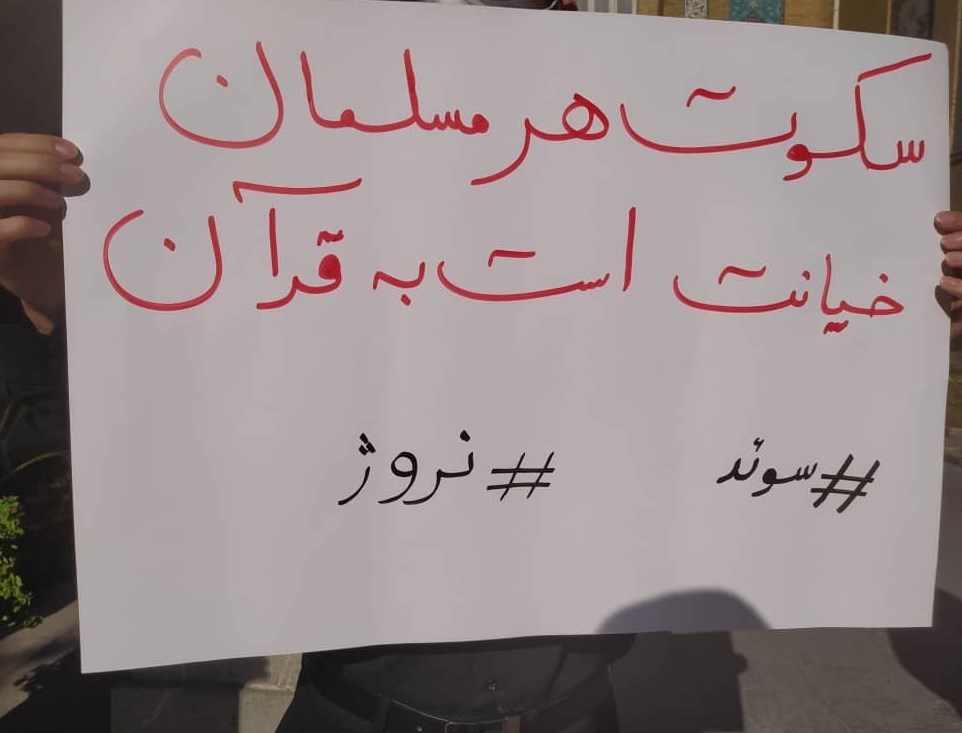 سکوت هر مسلمان
خیانت است به قرآن
#سوئد #نروژ